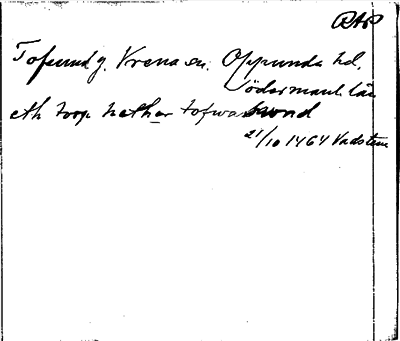 RAP
Tofsund g. Vrena sn. Oppunda hd.
Södermanl. län
eth torp hether tofwasund
21/10 1464 Vadstena